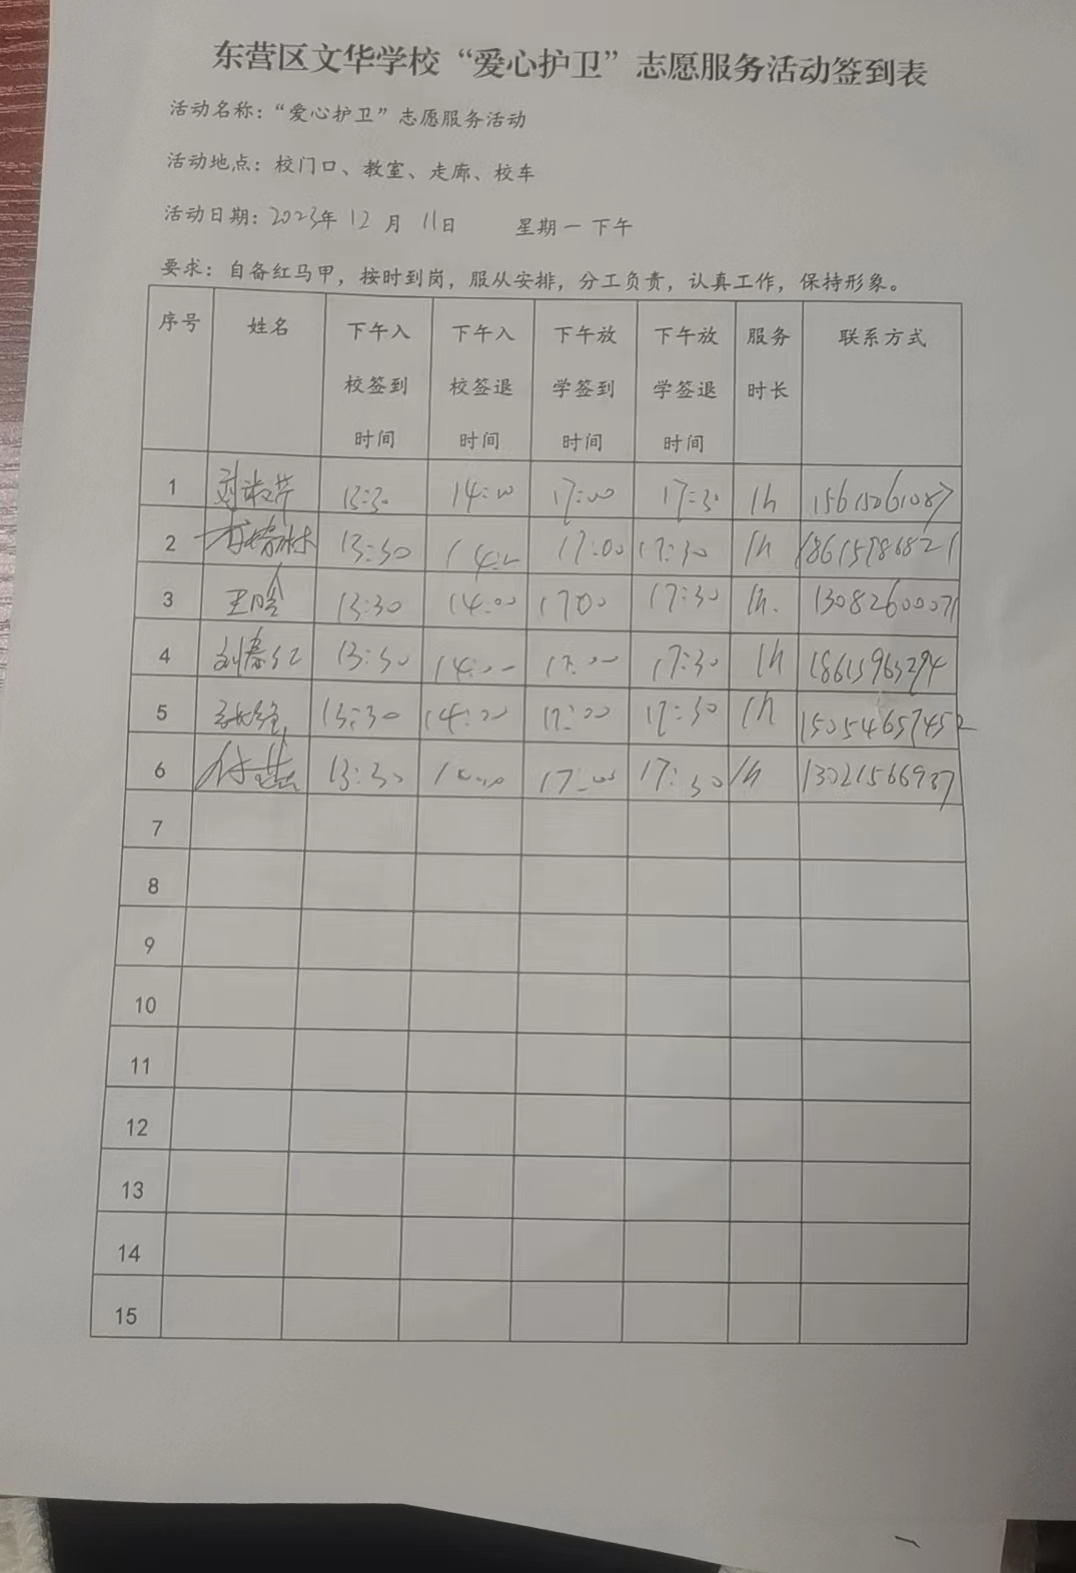 东营区文华学校“爱心护卫”志愿服务活动签到表
活动名称：“爱心护卫”志愿服务活动
活动地点：校门口、教室、走廊、校车
活动日期：2023年 12 月 11日 星期一下午
要求：自备红马甲，按时到岗，服从安排，分工负责，认真工作，保持形象。
序号 姓名 下午入校签到时间 下午入校签退时间 下午放学签到时间 下午放学签退时间 服务时长 联系方式
1 13:30 14:00 17:00 17:30 1h 15615061087
2 13:30 17:00 17:30 1h 18615786821
3 王晗 13:30 14:00 1700 17:30 1h. 13082600071
4 刘春红 13:30 14:00 17:00 17:30 1h
5 13:30 14:00 17:00 17:30 1h 15054657452
6 13:30 17:00 17:30 1h 13021566937
7
8
9
10
11
12
13
14
15